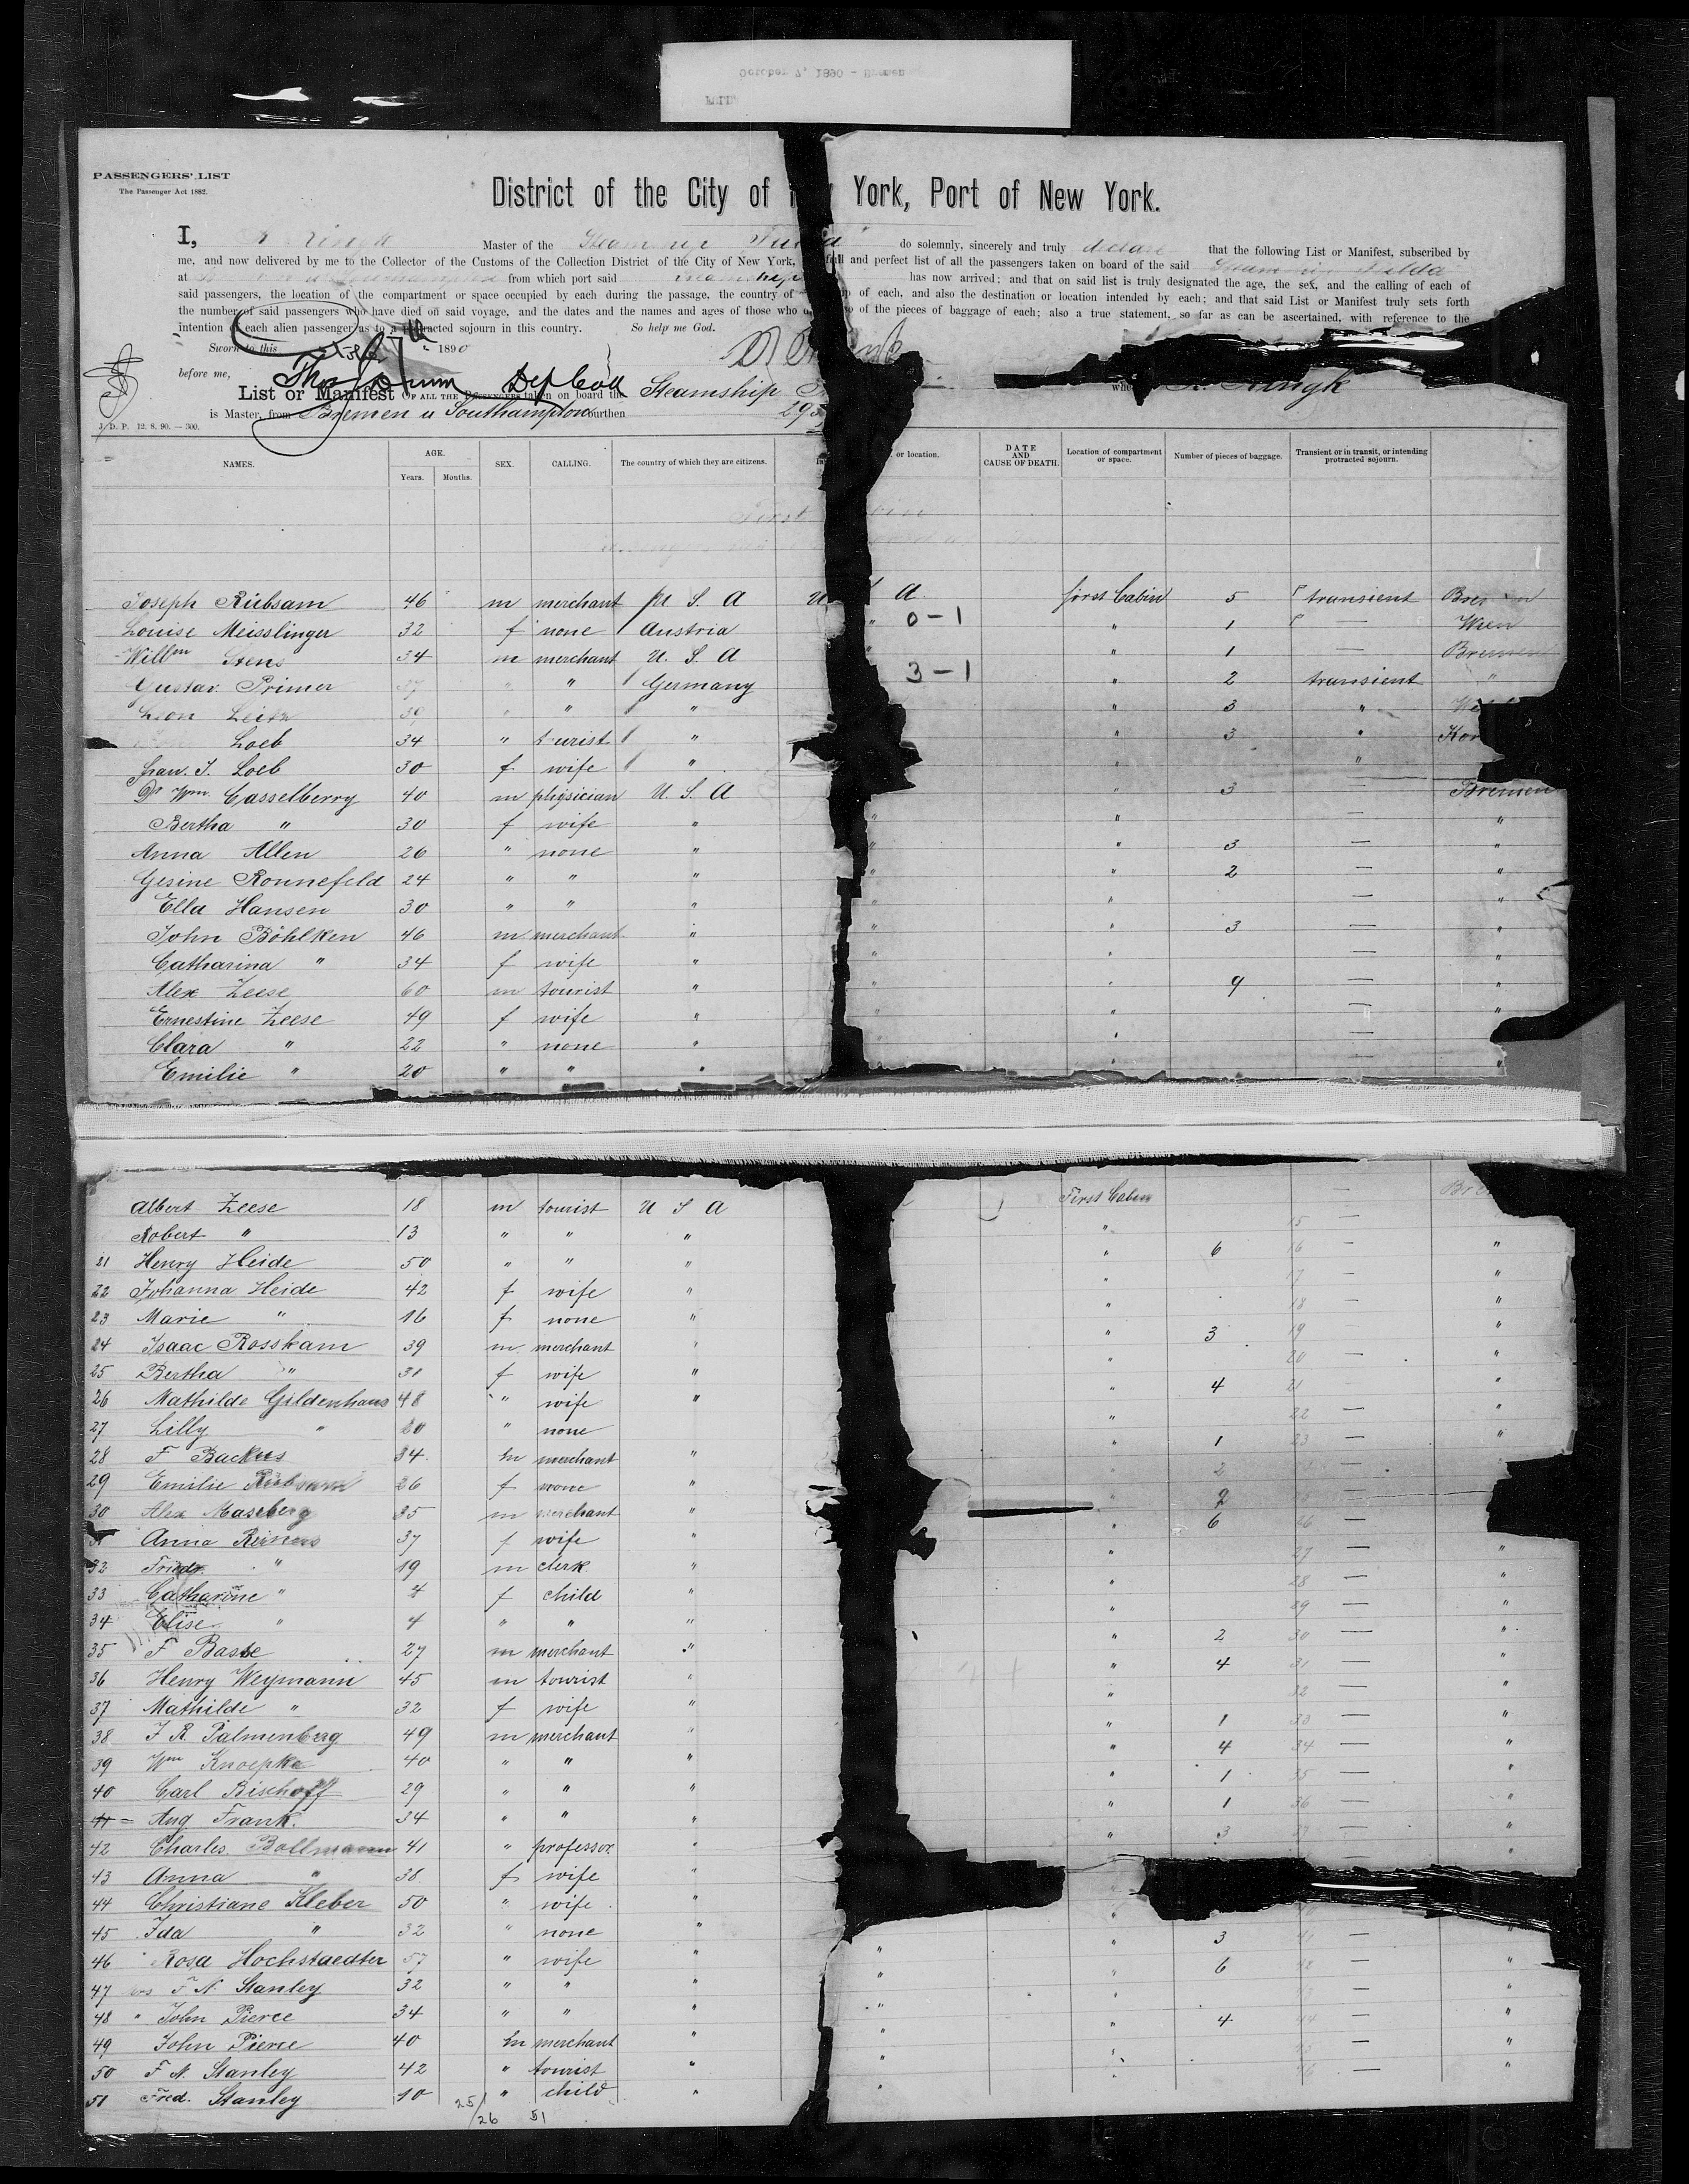 October 7, 1890 - Bremen
PASSENGERS' LIST
The Passenger Act 1882.
District of the City of York, Port of New York.
I, Ringk Master of the Steamer do solemnly, sincerely and truly declare that the following List or Manifest, subscribed by
me, and now delivered by me to the Collector of the Customs of the Collection District of the City of New York, full and perfect list of all the passengers taken on board of the said Fulda
at from which port said has now arrived; and that on said list is truly designated the age, the sex, and the calling of each of
said passengers, the location of the compartment or space occupied by each during the passage, the country of of each, and also the destination or location intended by each; and that said List or Manifest truly sets forth
the number of said passengers who have died on said voyage, and the dates and the names and ages of those who of the pieces of baggage of each; also a true statement, so far as can be ascertained, with reference to the
intention of each alien passenger as to a protracted sojourn in this country. So help me God.
Sworn to this 7th 1890
before me, Thos Dunn Dep Coll
List or Manifest OF ALL THE PASSENGERS taken on board the Steamship R. Ringk
is Master, from Bremen u Southampton burthen
J. D. P. 12. 8. 90. — 300.
NAMES. AGE. Years. Months. SEX. CALLING. The country of which they are citizens. or location. DATE AND CAUSE OF DEATH. Location of compartment or space. Number of pieces of baggage. Transient or in transit, or intending protracted sojourn.
First
Joseph Riebsam 46 m merchant U. S. A A first Cabin 5 transient Bremen
Louise Meisslinger 32 f none Austria " 0-1 " 1 — Wien
Willm Stens 34 m merchant U. S. A " " 1 — Bremen
Gustav. Primer 37 " " Germany 3-1 " 2 transient "
Leon Leitz 39 " " " " 3 "
Loeb 34 " tourist " " 3 "
Frau. J. Loeb 30 f wife " "
Dr Wm. Casselberry 40 m physician U. S. A " 3 — Bremen
Bertha " 30 f wife " " " — "
Anna Allen 26 " none " " " 3 — "
Gesine Ronnefeld 24 " " " " " 2 — "
Ella Hansen 30 " " " " " — "
John Böhlken 46 m merchant " " " 3 — "
Catharina " 34 f wife " " " — "
Alex Zeese 60 m tourist " " " 9 — "
Ernestine Zeese 49 f wife " " " — "
Clara " 22 " none " " " —
Emilie " 20 " " " " — "
Albert Zeese 18 m tourist U S A First Cabin —
Robert " 13 " " " " 15 —
21 Henry Heide 50 " " " " 6 16 — "
22 Johanna Heide 42 f wife " " 17 — "
23 Marie " 16 f none " " 18 — "
24 Isaac Rosskam 39 m merchant " " 3 19 — "
25 Bertha " 31 f wife " " 20 — "
26 Mathilde Gildenhaus 48 " wife " " 4 21 — "
27 Lilly " 20 " none " 22 — "
28 F Backus 34 m merchant " " 1 23 — "
29 Emilie 26 f none " " 2
30 Alex Maseberg 35 m merchant " " 2
Anna Reiners 37 f wife " " 6 26 —
32 Friedr. " 19 m clerk " " 27 — "
33 Catharine " 4 f child " " 28 — "
34 Elise " 4 " " " " 29 — "
35 F Basse 27 m merchant " " 2 30 — "
36 Henry Weymann 45 m tourist " " 4 31 — "
37 Mathilde " 32 f wife " " 32 — "
38 F R. Palmenberg 49 m merchant " " 1 33 — "
39 Wm Knoepke 40 " " " " 4 34 — "
40 Carl Bischoff 29 " " " " 1 35 — "
41 Aug Frank. 34 " " " " 1 36 — "
42 Charles Bollmann 41 " professor " " 3 37 — "
43 Anna " 38 f wife " — "
44 Christiane Kleber 50 " wife "
45 Ida " 32 " none " " 3 41 — "
46 Rosa Hochstaedter 57 " wife " " " 6 42 — "
47 F N. Stanley 32 " " " " " 43 — "
48 " John Pierce 34 " " " " " 4 44 — "
49 John Pierce 40 m merchant " " " 45 — "
50 F N. Stanley 42 " tourist " " " 46 — "
51 Fred. Stanley 10 " child " "
25/26 51